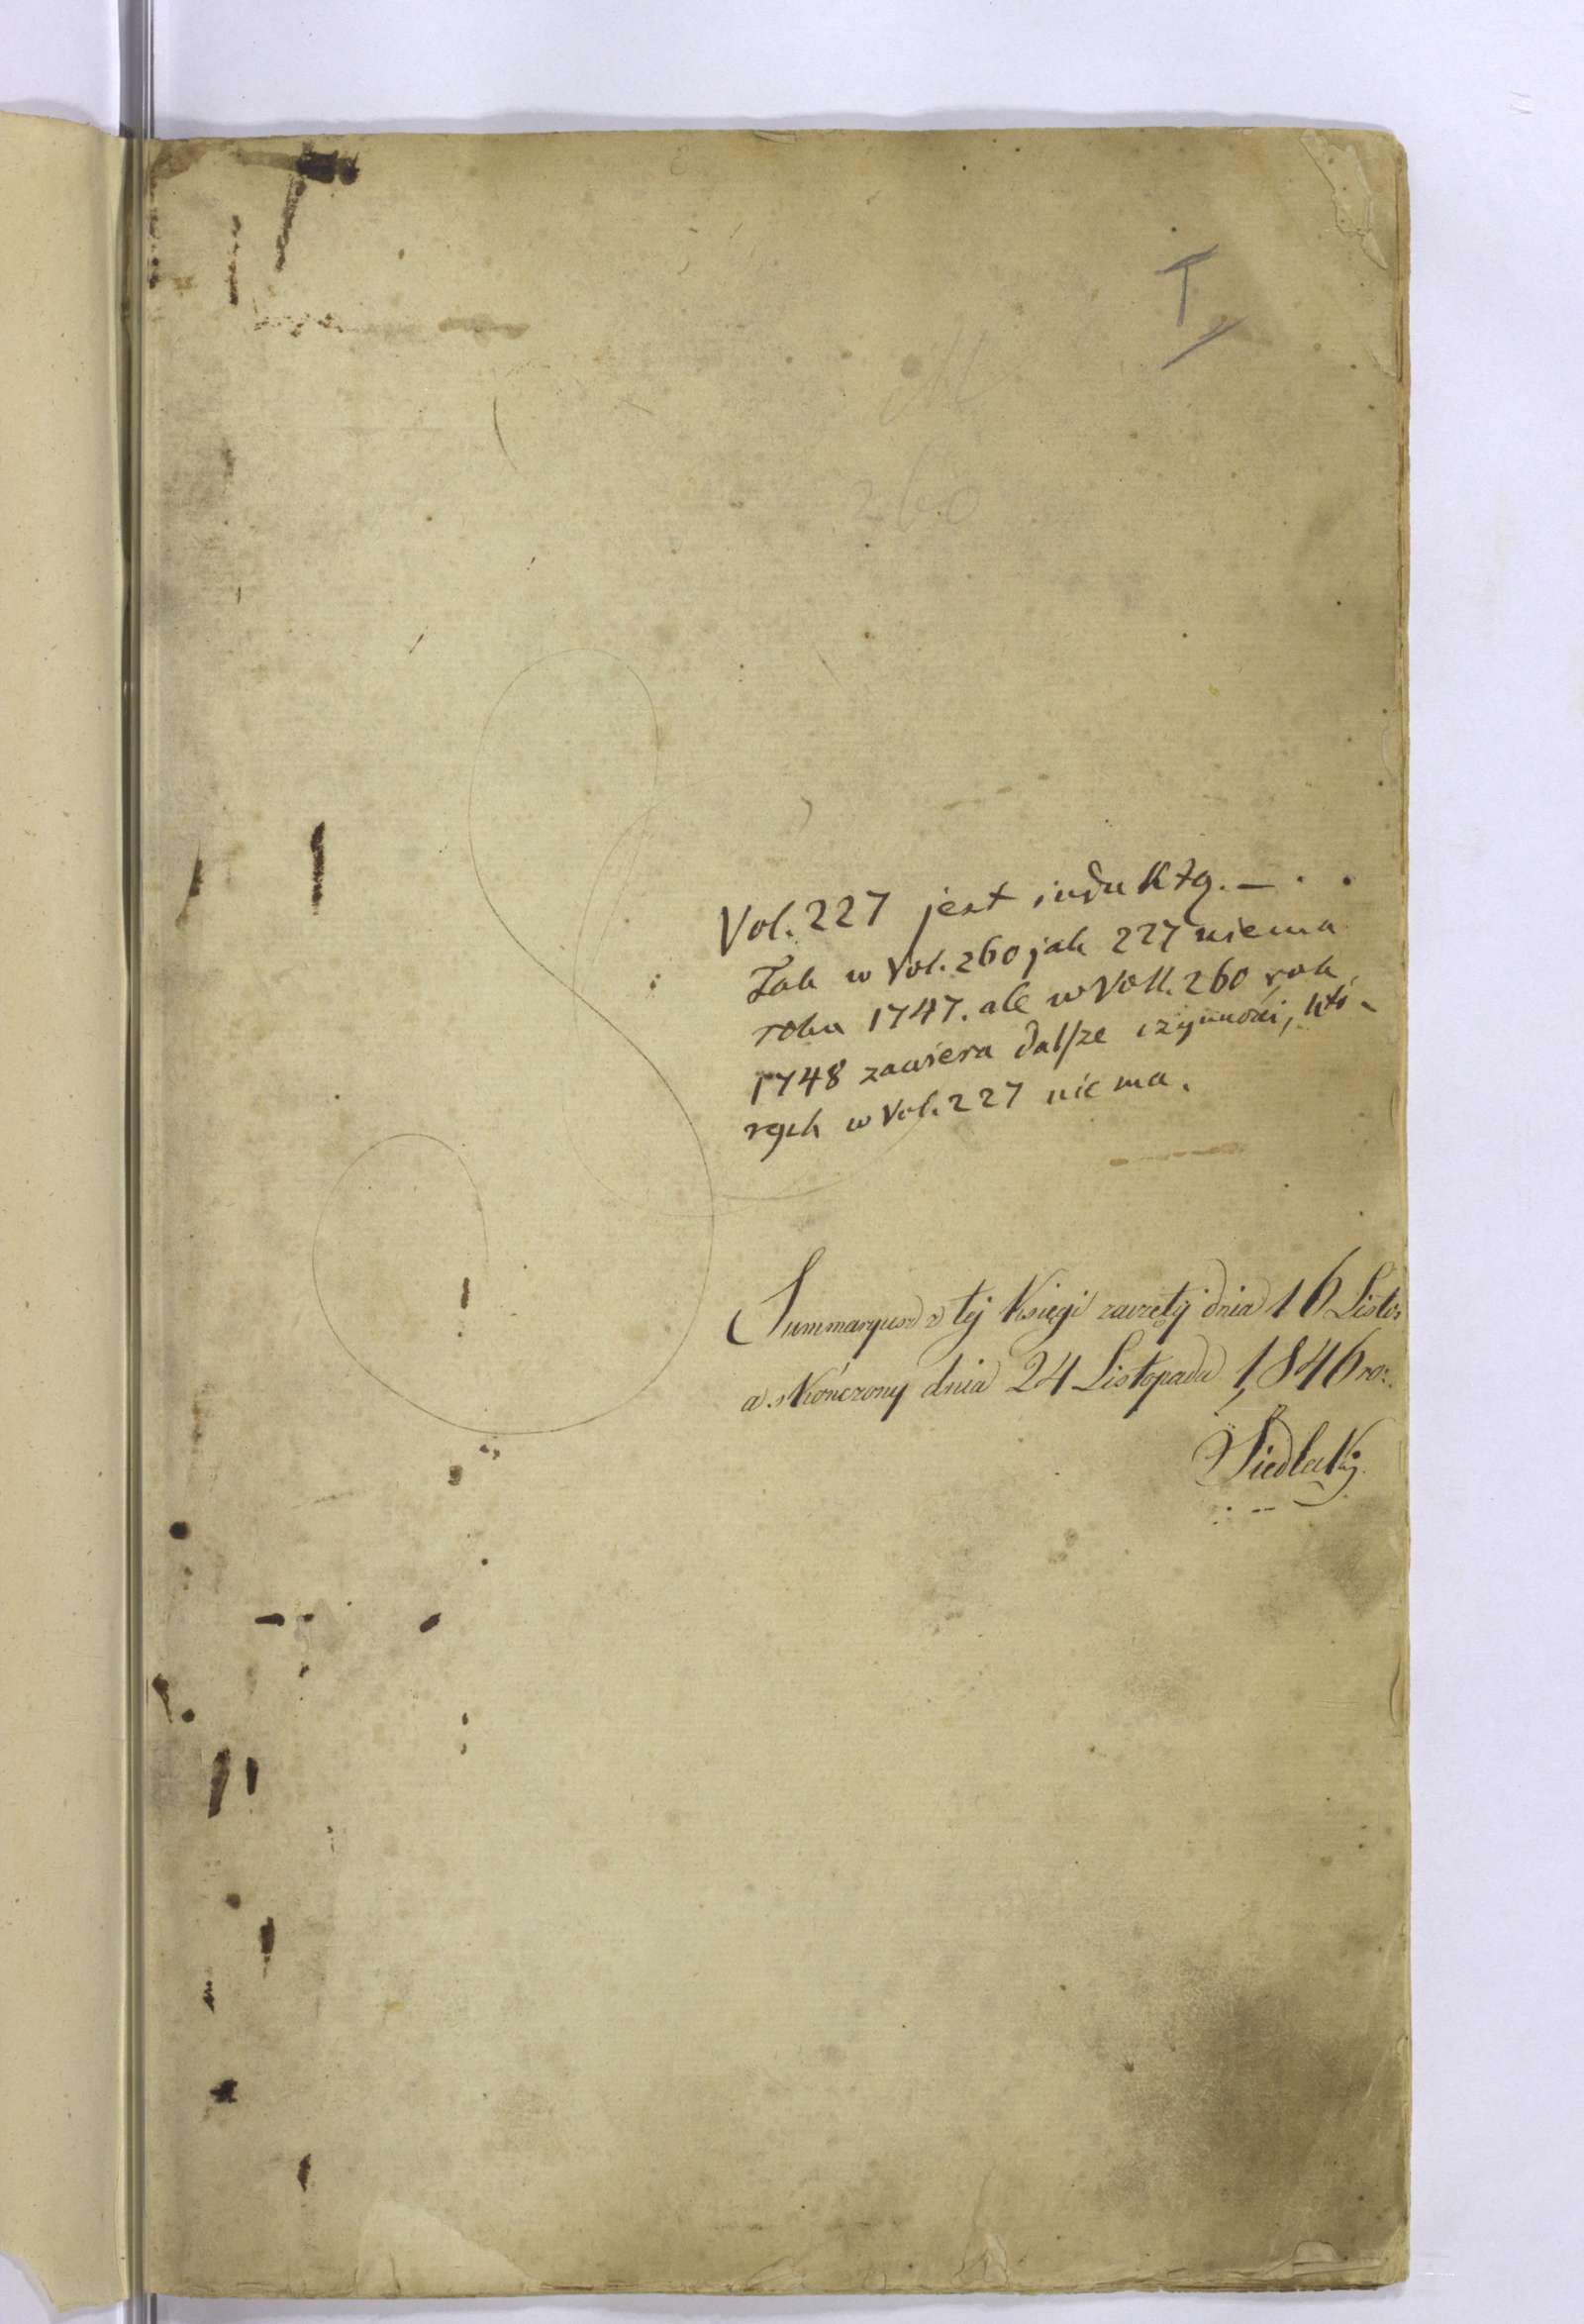 I
260
Vol. 227 jest induktą. — . .
Tak w Vol. 260 jak 227 niema
roku 1747. ale w Voll. 260 rok
1748 zawiera dalsze czynności, któ-
rych w Vol. 227 nie ma.
Summaryusz z tej Księgi zaczęty dnia 16 Listo:
a skończony dnia 24 Listopada 1846 ro:
Siedlecki